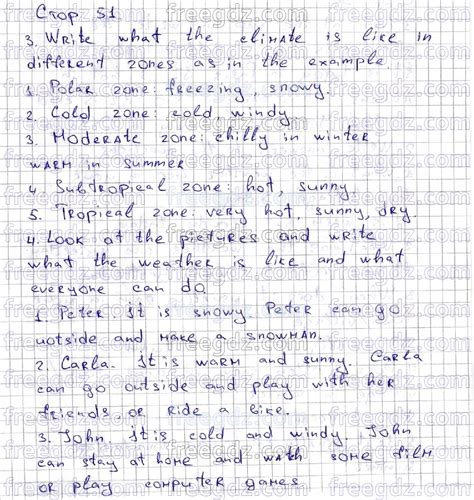 Стор. 51
3. Write what the climate is like in
different zones as in the example.
1. Polar zone: freezing, snowy.
2. Cold zone: cold, windy
3. Moderate zone: chilly in winter
warm in summer
4. Subtropical zone: hot, sunny.
5. Tropical zone: very hot, sunny, dry.
4. Look at the pictures and write
what the weather is like and what
everyone can do.
1. Peter. It is snowy. Peter can go
uotside and make a snowman.
2. Carla. It is warm and sunny. Carla
can go outside and play with her
friends, or ride a bike.
3. John. It is cold and windy. John
can stay at home and watch some film
or play computer games